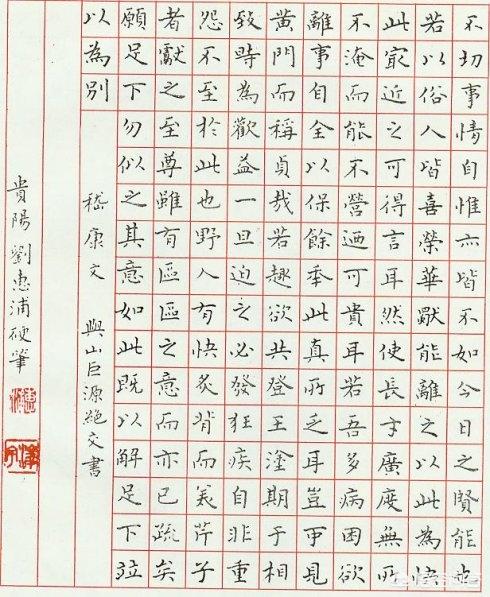 不切事情自惟亦皆不如今日之賢能也
若以俗人皆喜榮華獨能離之以此為快
此冣近之可得言耳然使長才廣度無所
不淹而能不營迺可貴耳若吾多病困欲
離事自全以保餘年此真所乏耳豈可見
黃門而稱貞哉若趣欲共登王塗期于相
致時為歡益一旦迫之必發狂疾自非重
怨不至於此也野人有快炙背而美芹子
者獻之至尊雖有區區之意而亦已疏矣
願足下勿似之其意如此既以解足下竝
以為別 嵇康文 與山巨源絕交書
貴陽劉惠浦硬筆